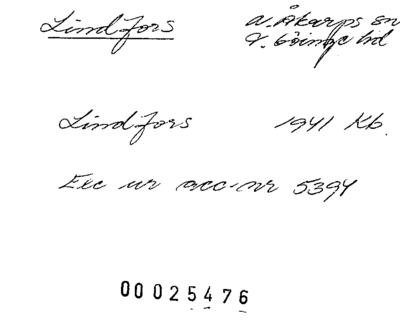 Lindfors N. Åkarps sn
V. Göinge hd
Lindfors 1941 Kb.
Exc ur acc-nr 5394
00025476